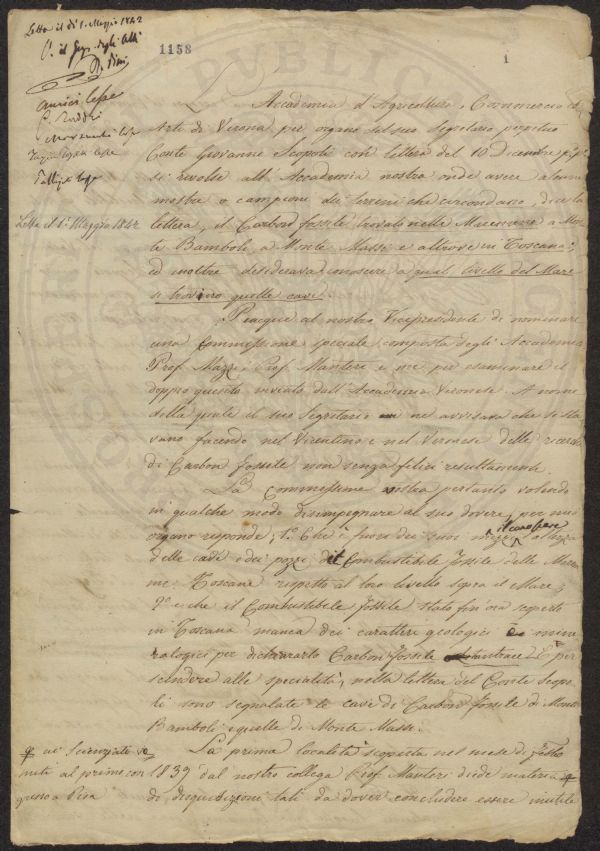 Letta il dì 1. Maggio 1842
1158
1
L'Accademia d'Agricoltura, Commercio ed
Arti di Verona per organo del suo Segretario perpetuo
Conte Giovanni Scopoli con lettera del 10 Dicembre
si rivolse all'Accademia nostra onde avere alcune
mostre o campione dei terreni che circondano, dice la
Letta il 1° Maggio 1842
lettera, il Carbon fossile trovato nelle Maremme a Mon
te Bamboli, a Monte Massi e altrove in Toscana;
ed inoltre desiderava conoscere a qual livello del Mare
si trovino quelle cave.
Piacque al nostro Vicepresidente di nominare
una Commissione speciale composta degli Accademici
Prof. Mazzi, Prof. Manteri e me per esaminare il
doppio quesito inviato dall'Accademia Veronese. A nome
della quale il suo Segretario ne avvisava che si sta
vano facendo nel Vicentino e nel Veronese delle ricerche
di Carbon fossile non senza felici resultamenti.
La Commissione nostra pertanto volendo
in qualche modo disimpegnare al suo dovere, per mio
organo risponde; 1.° Che è fuori dei suoi mezzi il conoscere altezza
delle cave o dei pozzi di Combustibile fossile delle Marem
me Toscane rispetto al loro livello sopra il Mare;
2° e che il Combustibile fossile stato fin ora scoperto
in Toscana manca dei caratteri geologici e mine
ralogici per dichiararlo Carbon fossile E per
scendere alle specialità, nella lettera del Conte Scopo
li sono segnalate le cave di Carbon fossile di Monte
Bamboli e quelle di Monte Massi.
La prima località scoperta nel mese di
ai Scienziati riu
niti al primo con
gresso a Pisa
1839 dal nostro collega Prof. Manteri diede materia
di disquisizioni tali da dover concludere essere inutile